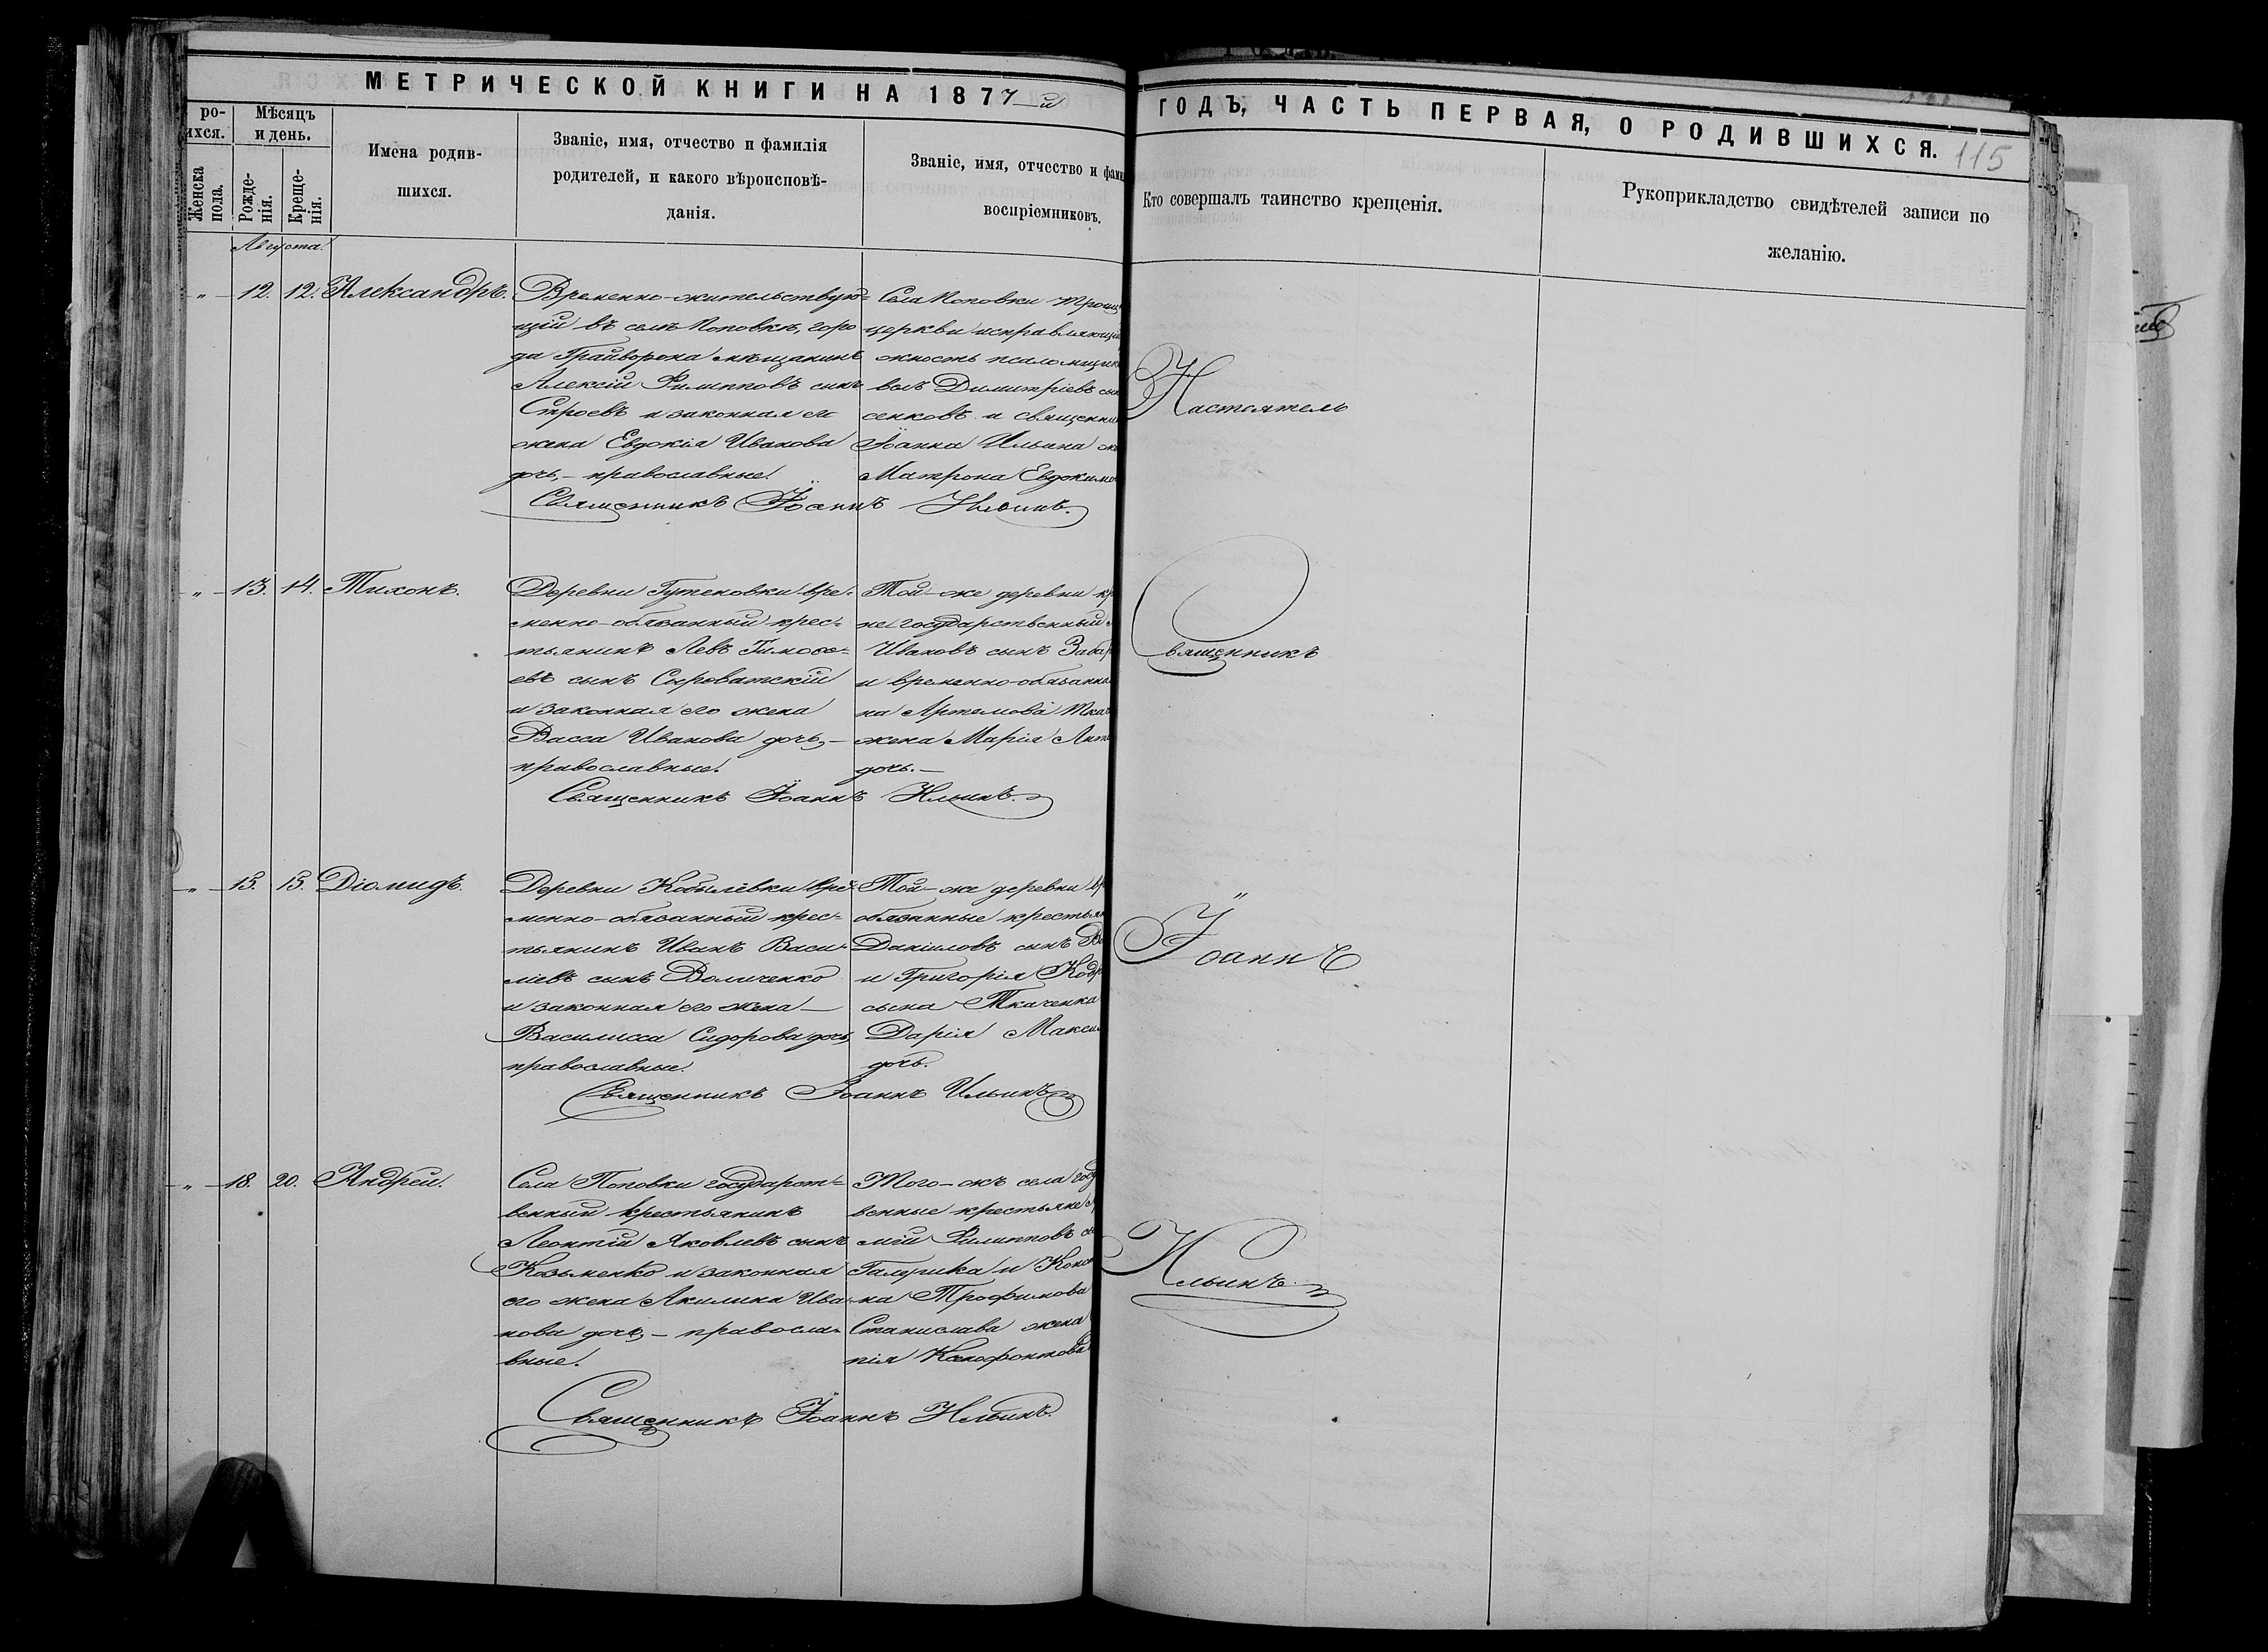 МЕТРИЧЕСКОЙ КНИГИ НА 1877-й
ГОДЪ, ЧАСТЬ ПЕРВАЯ, О РОДИВШИХСЯ.
115
ро-
ихся.
Женска
пола.
Мѣсяцъ
и день.
Рожде-
нія.
Креще-
нія.
Имена родив-
шихся.
Званіе, имя, отчество и фамилія
родителей, и какого вѣроисповѣ-
данія.
Званіе, имя, отчество и фами
воспріемниковъ.
Кто совершалъ таинство крещенія.
Рукоприкладство свидѣтелей записи по
желанію.
Августа.
" 12. 12. Александръ.
Временно-жительствую-
щій въ селѣ Поповкѣ, горо
да Грайворона мѣщанинъ
Алексій Филипповъ сынъ
Строевъ и законная его
жена Евдокія Иванова
дочь, - православные.
Села Поповки Троиц
церкви исправляющі
жность псаломщик
велъ Димитріевъ сын
сенковъ и священни
Іоанна Ильина же
Матрона Евдокимо
Священникъ Іоаннъ Ильинъ.
" 13. 14. Тихонъ.
Деревни Гутеновки вре-
менно-обязанный крес-
тьянинъ Левъ Тимоѳе-
евъ сынъ Сыроватскій
и законная его жена
Васса Иванова дочь, -
православные.
Той-же деревни кр
не государственный
Ивановъ сынъ Забар
и временно-обязанна
на Артемова Ткач
жена Марія Анто
дочь. -
Священникъ Іоаннъ Ильинъ.
" 15. 15. Діомидъ.
Деревни Кобылёвки вре-
менно-обязанный крес-
тьянинъ Иванъ Васи-
льевъ сынъ Величенко
и законная его жена -
Василисса Сидорова дочь,
православные.
Той-же деревни вр
обязанные крестьян
Даніиловъ сынъ Ве
и Григорія Кодр
сына Ткаченка
Дарія Макси
дочь.
Священникъ Іоаннъ Ильинъ
" 18. 20. Андрей.
Села Поповки государст-
венный крестьянинъ
Леонтій Яковлевъ сынъ
Козьменко и законная
его жена Акилина Ива-
нова дочь, - правосла-
вные.
Того-жъ села госу
венные крестьяне
мій Филипповъ сы
Галушка и Конс
на Трофимова
Станислава жена
нія Ксенофонтова
Священникъ Іоаннъ Ильинъ.
Настоятель
Священникъ
Іоаннъ
Ильинъ.